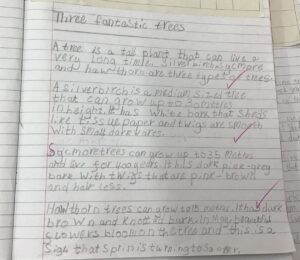 Three fantastic trees
A tree is a tall plant that can live a
very long time. Silver birch sycmore
and hawthorn are three types of trees.
A silver birch is a medium sized tree
that can grow up to 30 metres
in height. It has white bark that sheds
like tissue paper and twigs are smooth
with small dark
Sycmore trees can grow up to 35 metres
and live for 400 years. It has dark pink-grey
bark with twigs that are pink-brown
and hair less.
Hawthorn trees can grow to 15 metres. It has dark
brown and knotted bark. In May beautiful
flowers bloom on the tree and this is a
sign that sprin is turning to